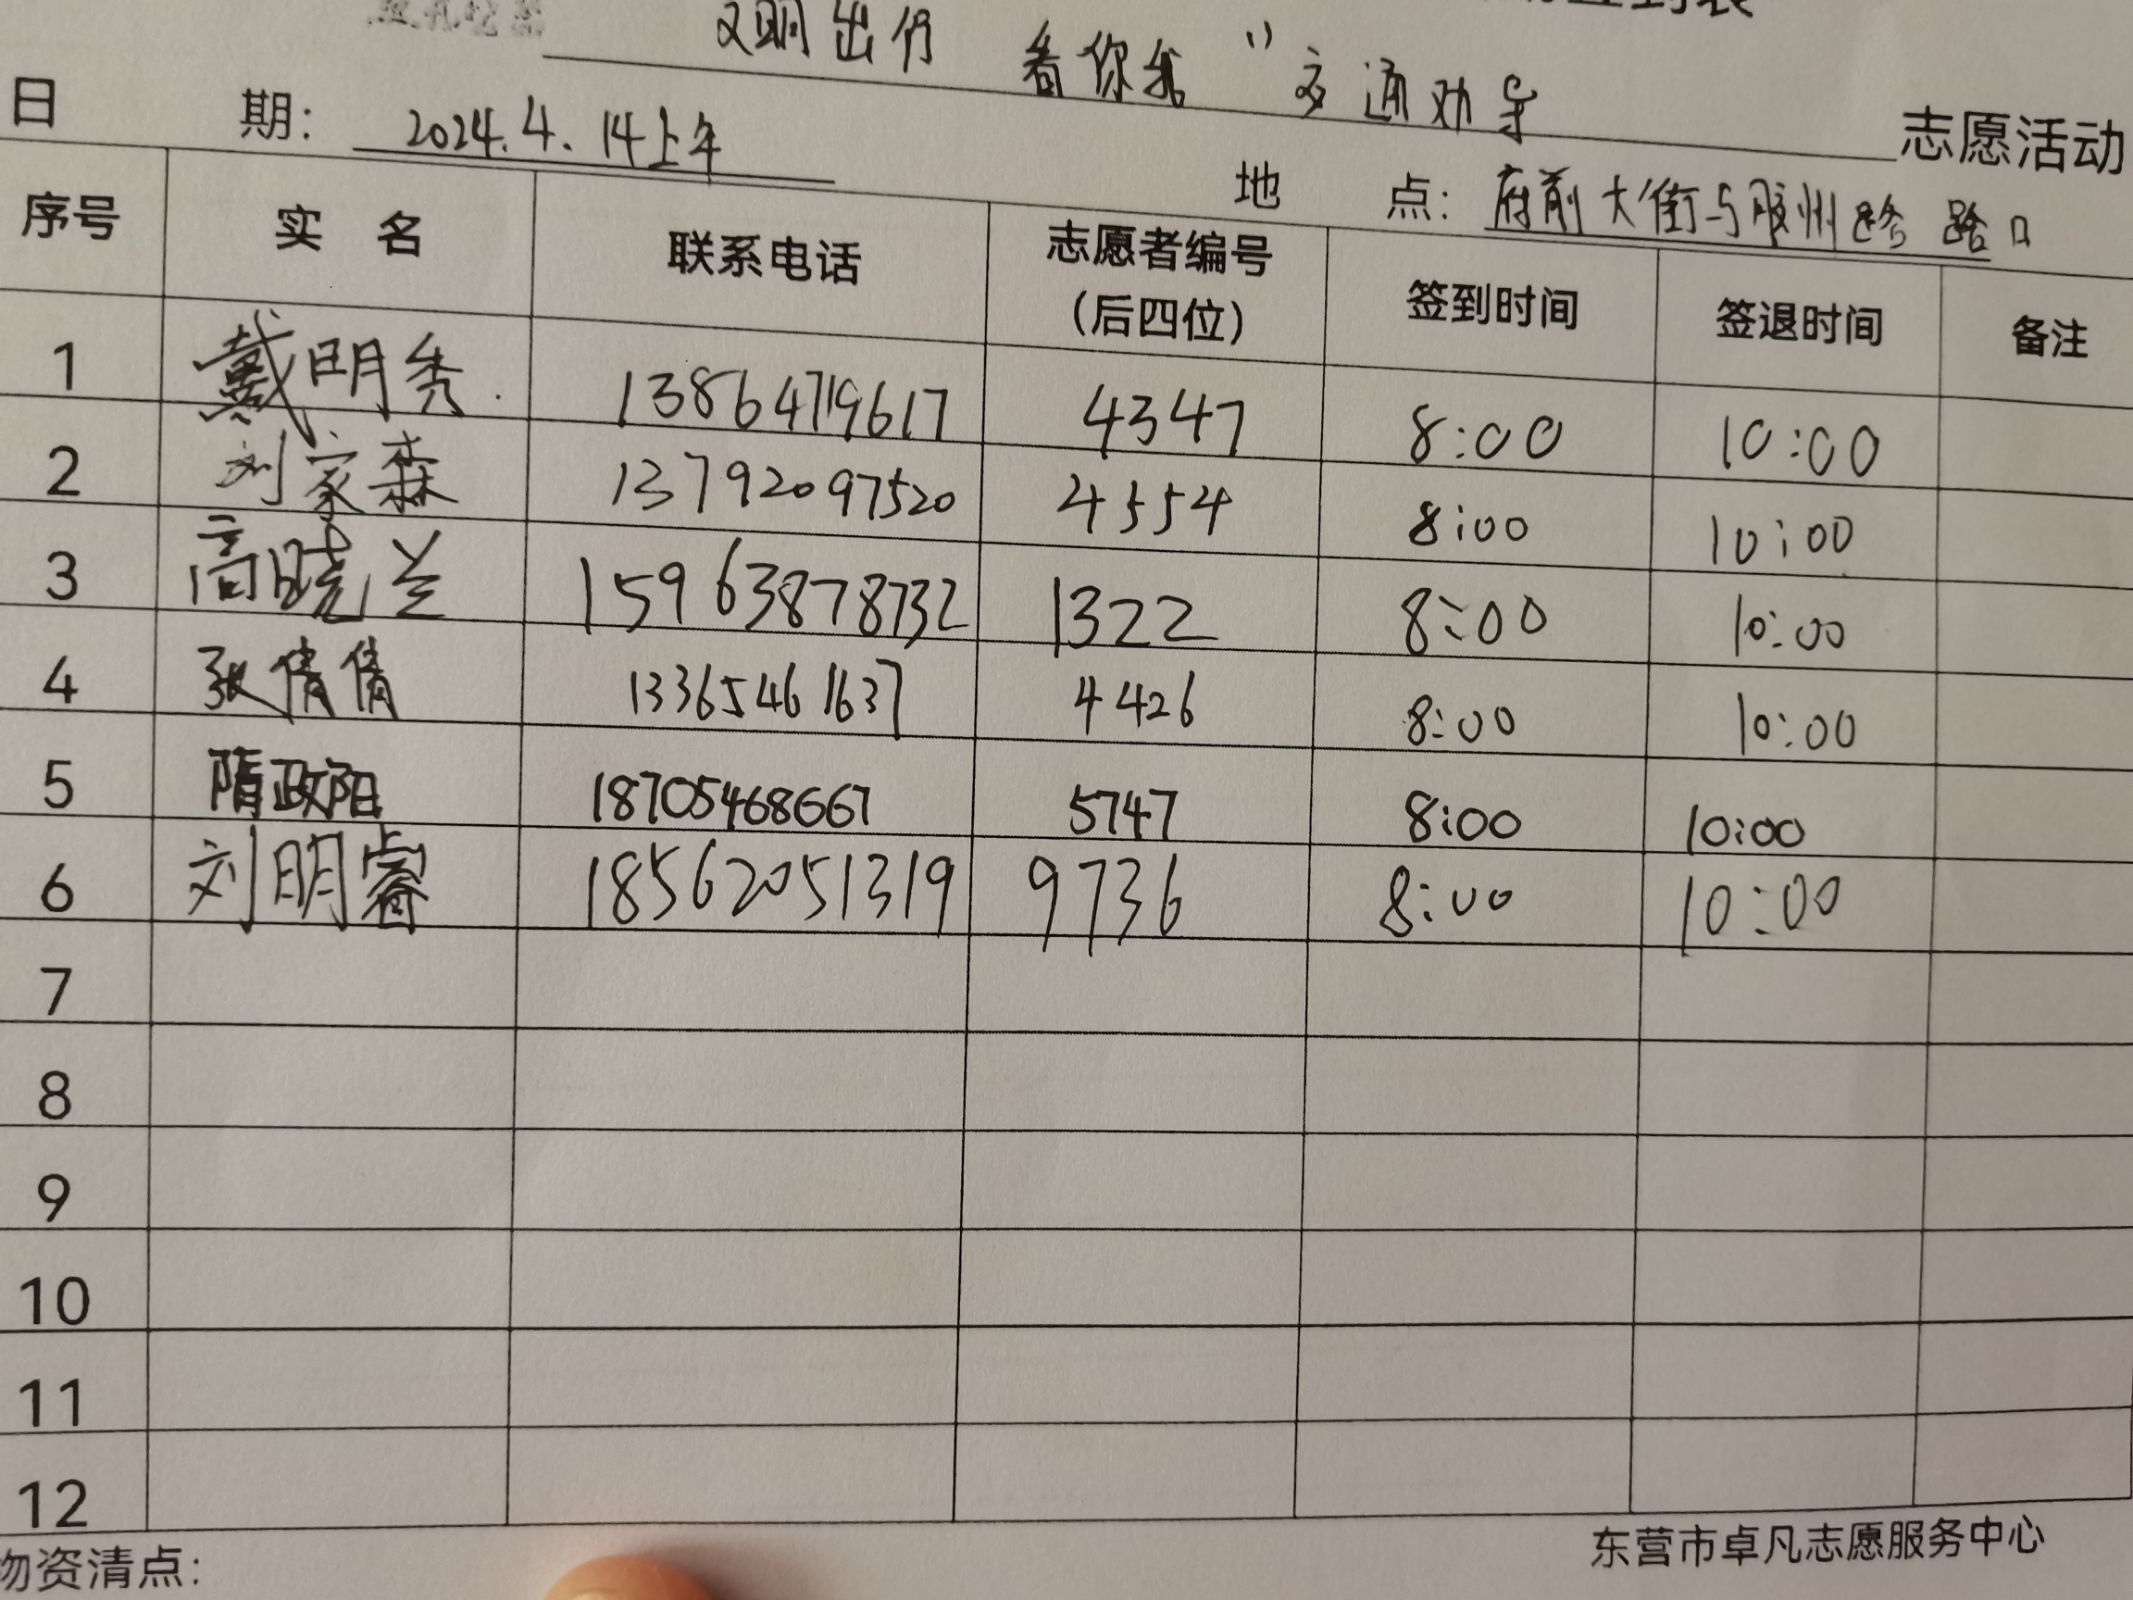 文明出行 看你我" 交通劝导 志愿活动
日 期: 2024.4.14上午
地 点: 府前大街与胶州路 路口
序号 实 名 联系电话 志愿者编号(后四位) 签到时间 签退时间 备注
1 戴明秀 13864719617 4347 8:00 10:00
2 刘家森 13792097520 4554 8:00 10:00
3 高晓兰 15963878732 1322 8:00 10:00
4 张倩倩 13365461637 4426 8:00 10:00
5 隋政阳 18705468667 5747 8:00 10:00
6 刘明睿 18562051319 9736 8:00 10:00
7
8
9
10
11
12
物资清点:
东营市卓凡志愿服务中心